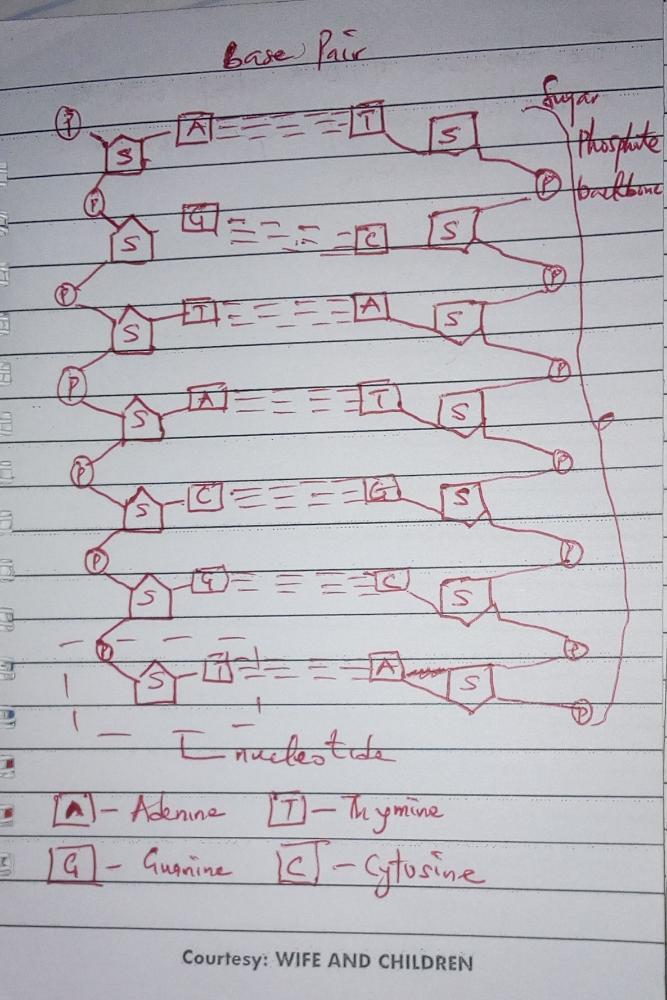 Base Pair
Sugar
Phosphate
backbone
P
S A T S
P P
S G C S
P P
S T A S
P P
S A T S
P P
S C G S
P P
S G C S
P P
S T A S
P
nucleotide
A - Adenine T - Thymine
G - Guanine C - Cytosine
Courtesy: WIFE AND CHILDREN